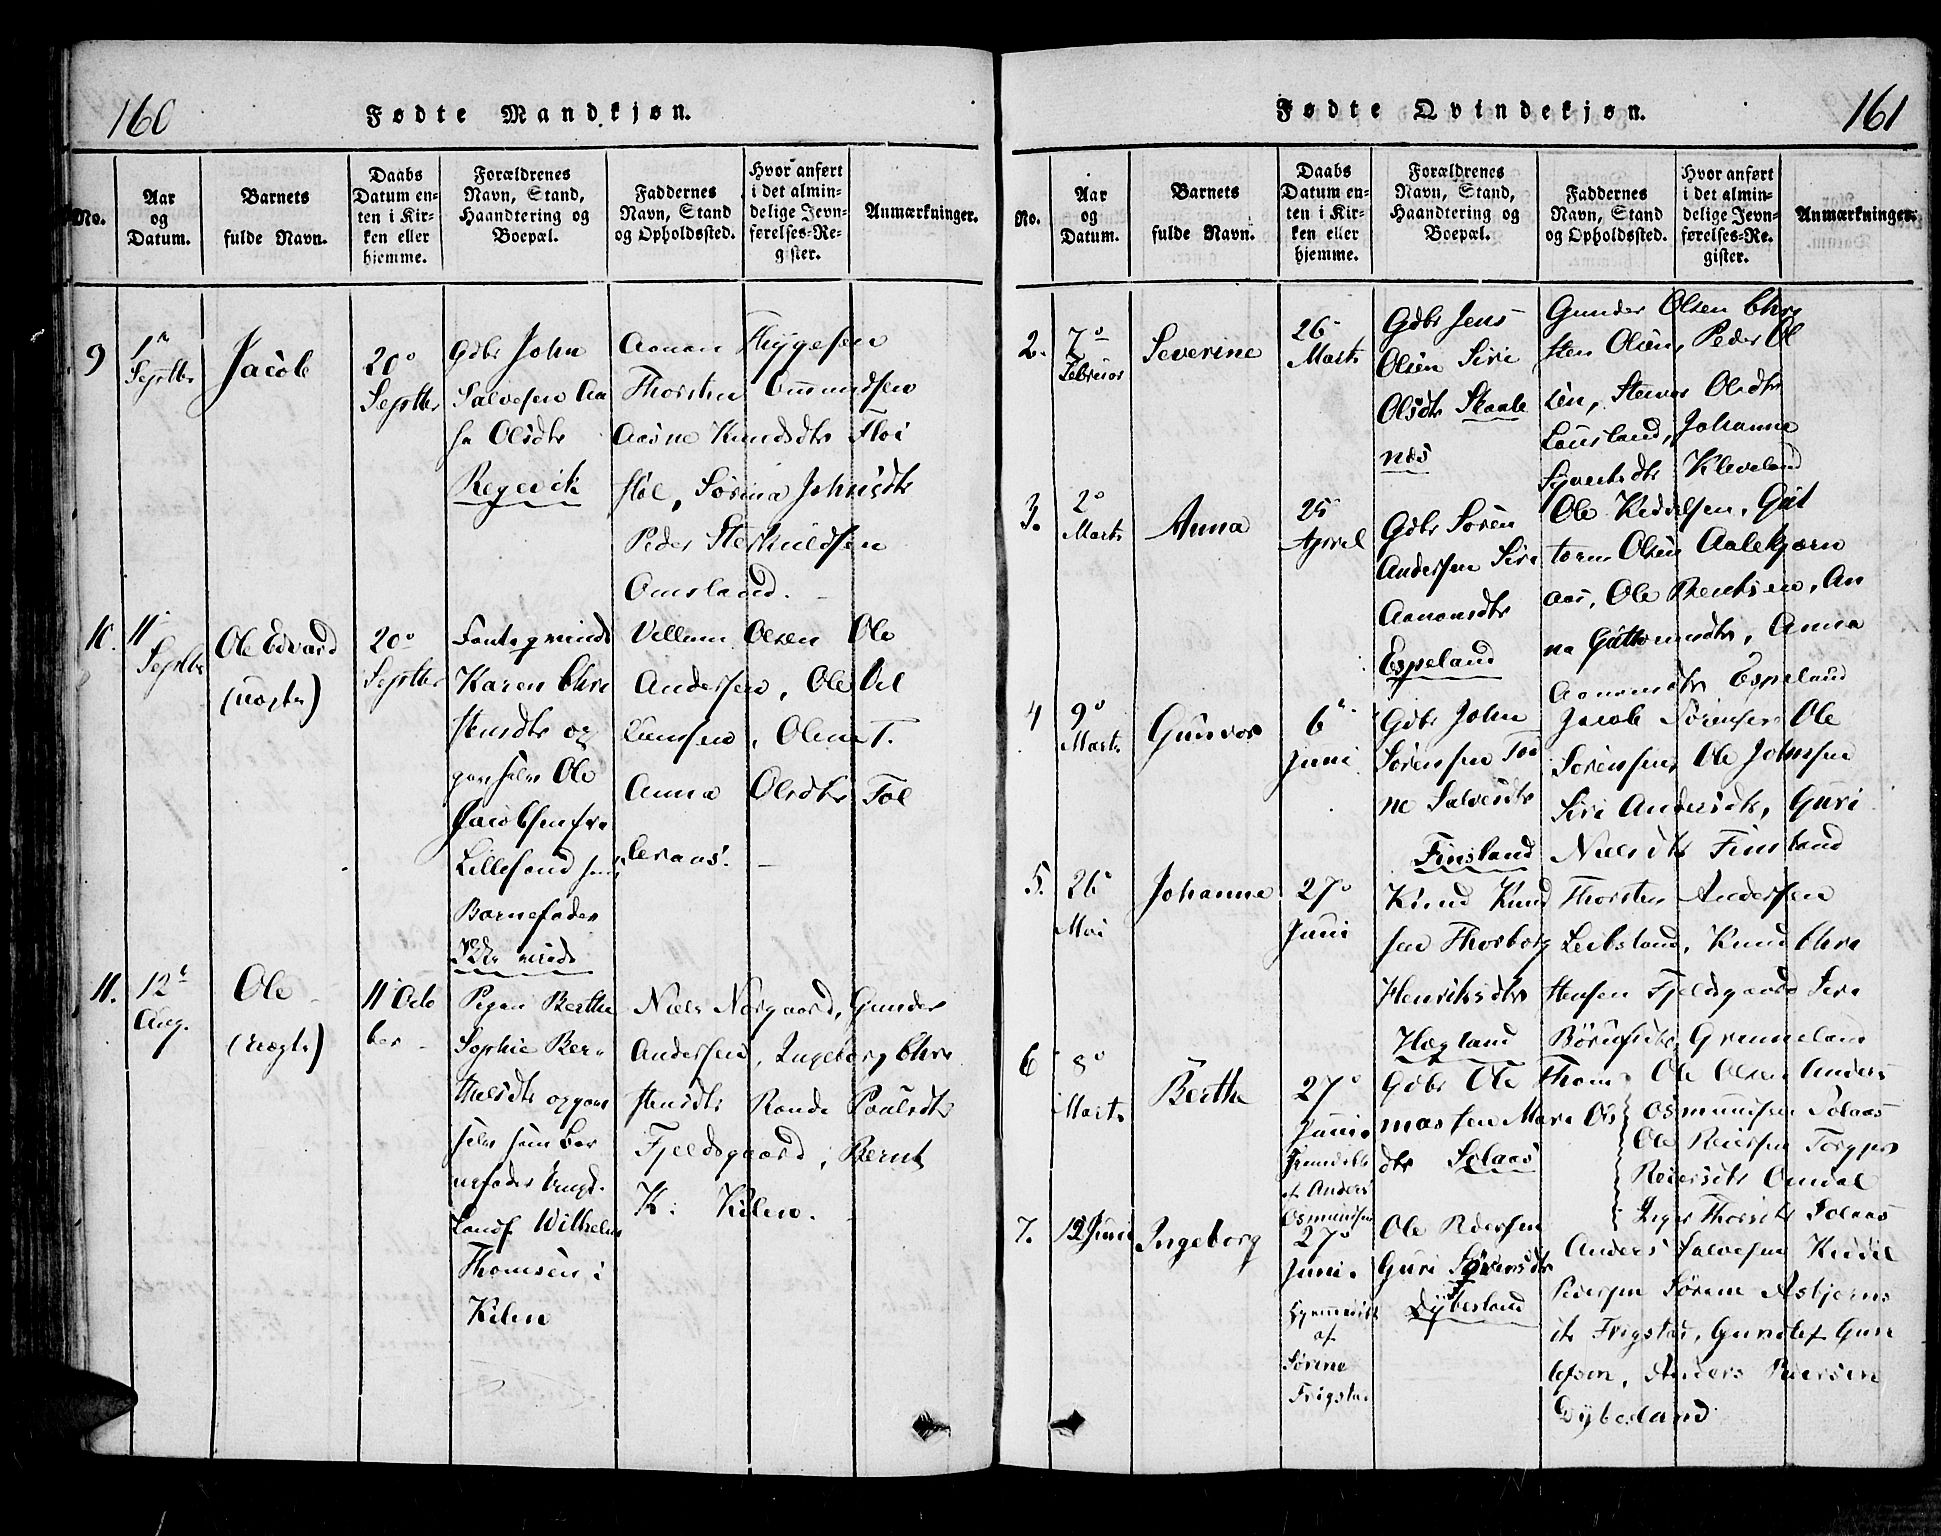 160
Fødte Mandkjøn.
No.
Aar og Datum.
Barnets fulde Navn.
Daabs Datum enten i Kirken eller hjemme.
Forældrenes Navn, Stand, Haandtering og Boepæl.
Faddernes Navn, Stand og Opholdssted.
Hvor anført i det almindelige Jevnførelses-Register.
Anmærkninger.
9
1
Septbr
Jacob
20
Septbr
Gdbr John
Salvesen Aa
sa Olsdtr
Regevik
Aanon Thygesen
Thorsten Omundsen
Aasne Knudsdtr Floi
støl, Sørina Johnsdtr
Peder Sterkuldsen
Omsland.
10.
11
Septbr
Ole Edvard
(uægte)
20
Septbr
Karen Chri
stensdtr og
Ole
Jacobsen fra
Lillesand som
Barnefader
Villum Olsen Ole
Andersen, Ole
Olene T.
Anna Olsdtr Føl
leraas.
11.
12
Aug.
Ole
(uægte)
11 Octo
ber
Pigen Berthe
Sophie Ber
thelsdtr og
som Bar
nefader
Landf Wilhelm
Thomsen i
Kilen
Niels Norgaard, Gunder
Andersen, Ingeborg Chri
stensdtr Rande Paulsdtr
Fjeldsgaard, Bernt
K. Kilen.
161
Fødte Qvindekjøn.
No.
Aar og Datum.
Barnets fulde Navn.
Daabs Datum enten i Kirken eller hjemme.
Forældrenes Navn, Stand, Haandtering og Boepæl.
Faddernes Navn, Stand og Opholdssted.
Hvor anført i det almindelige Jevnførelses-Register.
Anmærkninger.
2.
7
Februar
Severine
26
Marts
Gdbr Jens
Olsen Siri
Olsdtr Skaale
næs
Gunder Olsen Chri
sten Olsen, Peder Ol
sen, Olsdtr
Lausland, Johanne
Syvertsdtr Kleveland
3.
2
Marts
Anna
25
April
Gdbr Søren
Andersen Siri
Aanonsdtr
Espeland
Ole Kiddelsen, Gut
torm Olsen Aalekjærn
aas, Ole Berntsen, An
na Guttormsdtr, Anna
Aanonsdtr Espeland
4
9
Marts
Gunvor
6
Juni
Gdbr John
Sørensen To
ne Salvesdtr
Finsland
Jacob Sørensen Ole
Sørensen, Ole Johnsen
Siri Andersdtr, Guri
Nielsdtr Finsland
5.
26
Mai
Johanne
27
Juni
Knud Knud
sen Thorborg
Henriksdtr
Høgland
Thorsten Andersen
Leibsland, Knud Chri
stensen Fjeldsgaard Siri
Grundeland
6
8
Marts
Berthe
27
Juni
af Anders
Osmundsen
Gdbr Ole Thom
massen Mari Ols
dtr Solaas
Ole Olsen Anders
Osmundsen Solaas
Ole Reiersen Torgger
Reiersdtr Omdal
Inger Thorsdtr Solaas
7.
12 Juni
Ingeborg
27
Juni.
Hjemmedøbt
af
Sørine
Frigstad
Ole Pedersen
Guri Sørensdtr
Dybesland
Anders Salvesen Kiddil
Pedersen Sørine Asbjørns
dtr Frigstad, Gunlef Gun
lefsen, Anders Reiersen
Dybesland